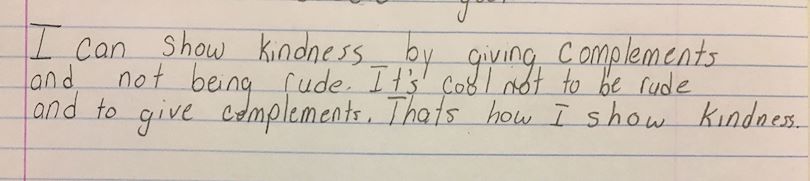 I can show kindness by giving complements
and not being rude. It's cool not to be rude
and to give complements. Thats how I show kindness.